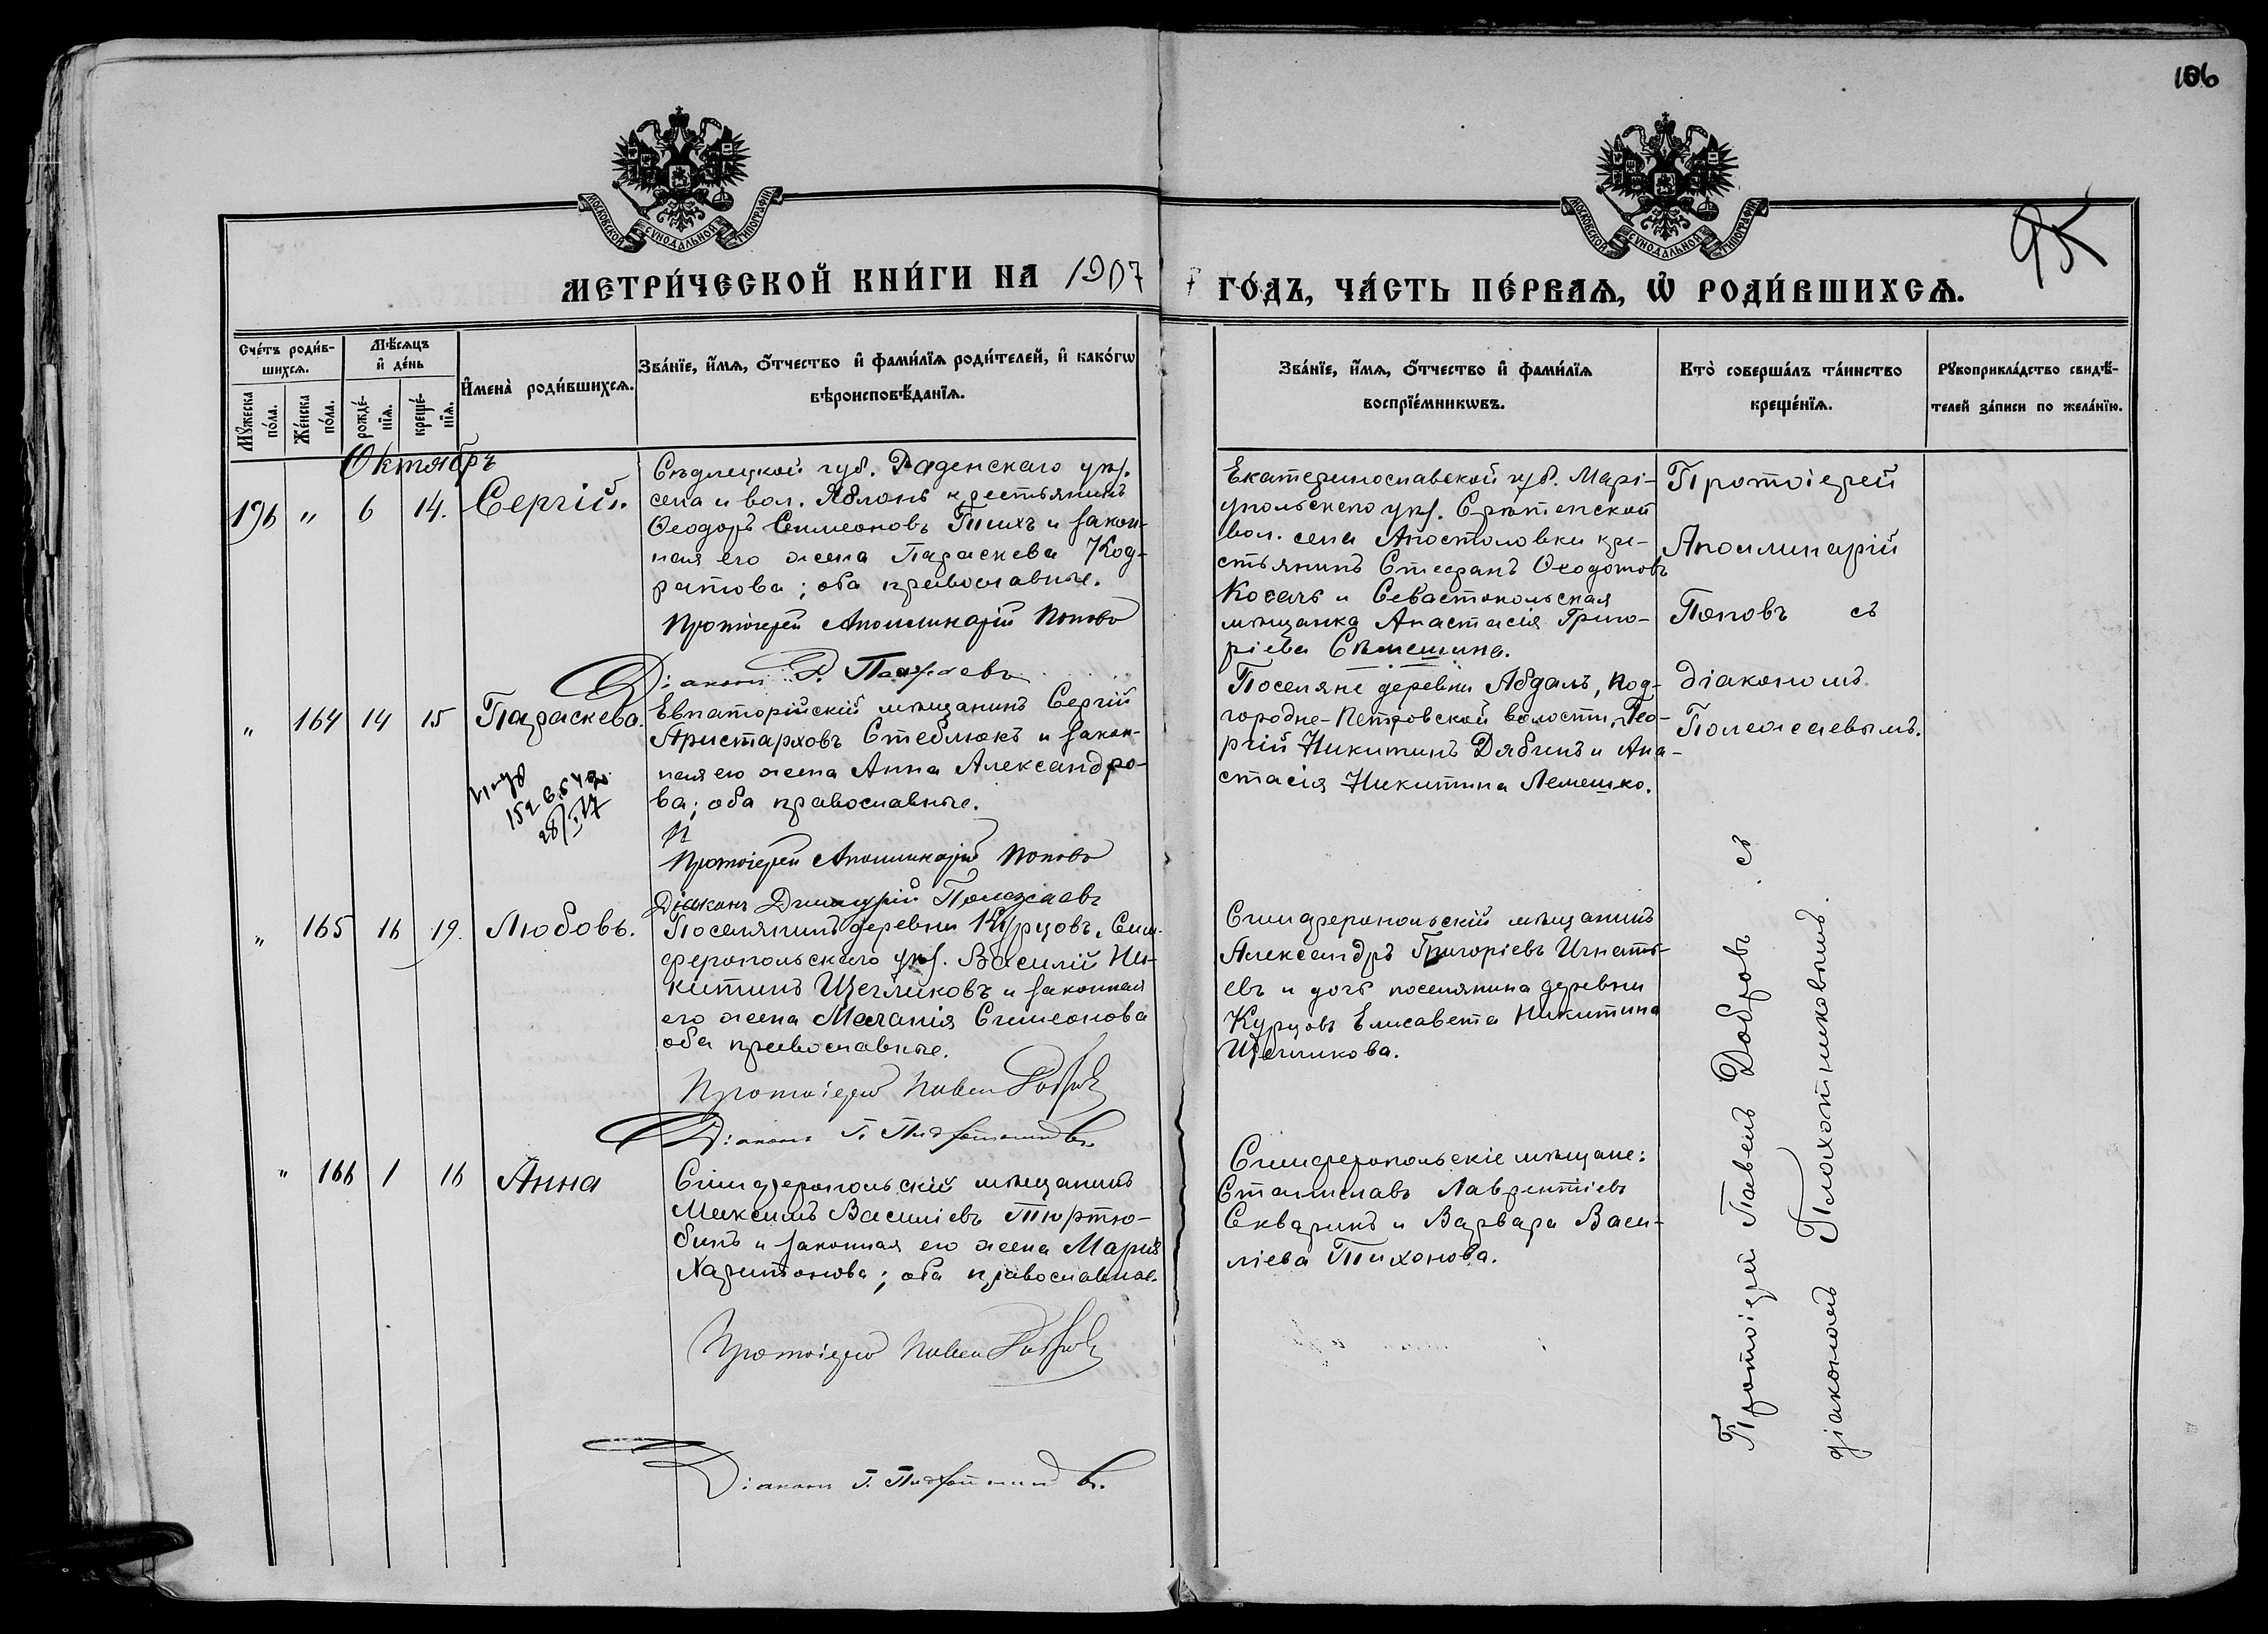 106
МОСКОВСКОЙ СѴНОДАЛЬНОЙ ТИПОГРАФІИ
МОСКОВСКОЙ СѴНОДАЛЬНОЙ ТИПОГРАФІИ
МЕТРИ́ЧЕСКОЙ КНИ́ГИ НА 1907
ГО́ДЪ, ЧА́СТЬ ПЕ́РВАѦ, Ѡ҆ РОДИ́ВШИХСѦ.
Сче́тъ роди́в-
шихсѧ.
Мꙋ́жеска по́ла.
Же́нска по́ла.
Мѣ́сѧцъ
и҆ де́нь
рожде́-
нїѧ.
креще́-
нїѧ.
И҆мена̀ роди́вшихсѧ.
Зва́нїе, и҆́мѧ, ѻ҆́тчество и҆ фами́лїѧ роди́телей, и҆ како́гѡ
вѣроисповѣ́данїѧ.
Зва́нїе, и҆́мѧ, ѻ҆́тчество и҆ фами́лїѧ
воспрїе́мникѡвъ.
Кто̀ соверша́лъ та́инство
креще́нїѧ.
Рꙋкоприкла́дство свидѣ́-
телей за́писи по жела́нїю.
Октябрь
196 " 6 14. Сергій.
Сѣдлецкой губ. Раденскаго уѣз.
села и вол. Яблонь крестьянинъ
Ѳеодоръ Симеоновъ Тишъ и закон-
ная его жена Параскева Код-
ратова; оба православные.
Протоіерей Аполлинарій Поповъ
Діаконъ Полежаевъ
Екатеринославской губ. Марі-
упольскаго уѣз. Срѣтенской
вол. села Апостоловки кре-
стьянинъ Стефанъ Ѳеодотовъ
Косачъ и Севастопольская
мѣщанка Анастасія Григо-
ріева Сѣмешина.
Протоіерей
Аполлинарій
Поповъ съ
діакономъ
Полежаевымъ.
" 164 14 15 Параскева.
Евпаторійскій мѣщанинъ Сергій
Аристарховъ Стеблюкъ и закон-
ная его жена Анна Александро-
ва; оба православные.
Протоіерей Аполлинарій Поповъ
Діаконъ Димитрій Полежаевъ
Поселяне деревни Абдалъ, Под-
городне-Петровской волости, Гео-
ргій Никитинъ Дябинъ и Ана-
стасія Никитина Лемешко.
" 165 16 19. Любовь.
Поселянинъ деревни Курцовъ, Сим-
феропольскаго уѣз. Василій Ни-
китинъ Щегликовъ и законная
его жена Меланія Симеонова
оба православные.
Протоіерей Павелъ Добровъ
Діаконъ Плохотниковъ.
Симферопольскій мѣщанинъ
Александръ Григоріевъ Игнать-
евъ и дочь поселянина деревни
Курцовъ Елисавета Никитина
Щегликова.
" 166 1 16 Анна
Симферопольскій мѣщанинъ
Максимъ Василіевъ Тюртю-
бинъ и законная его жена Марія
Харитонова; оба православные.
Протоіерей Павелъ Добровъ
Діаконъ Плохотниковъ.
Симферопольскіе мѣщане:
Станиславъ Лаврентіевъ
Скваринъ и Варвара Васи-
ліева Тихонова.
Протоіерей Павелъ Добровъ съ
діакономъ Плохотниковымъ.